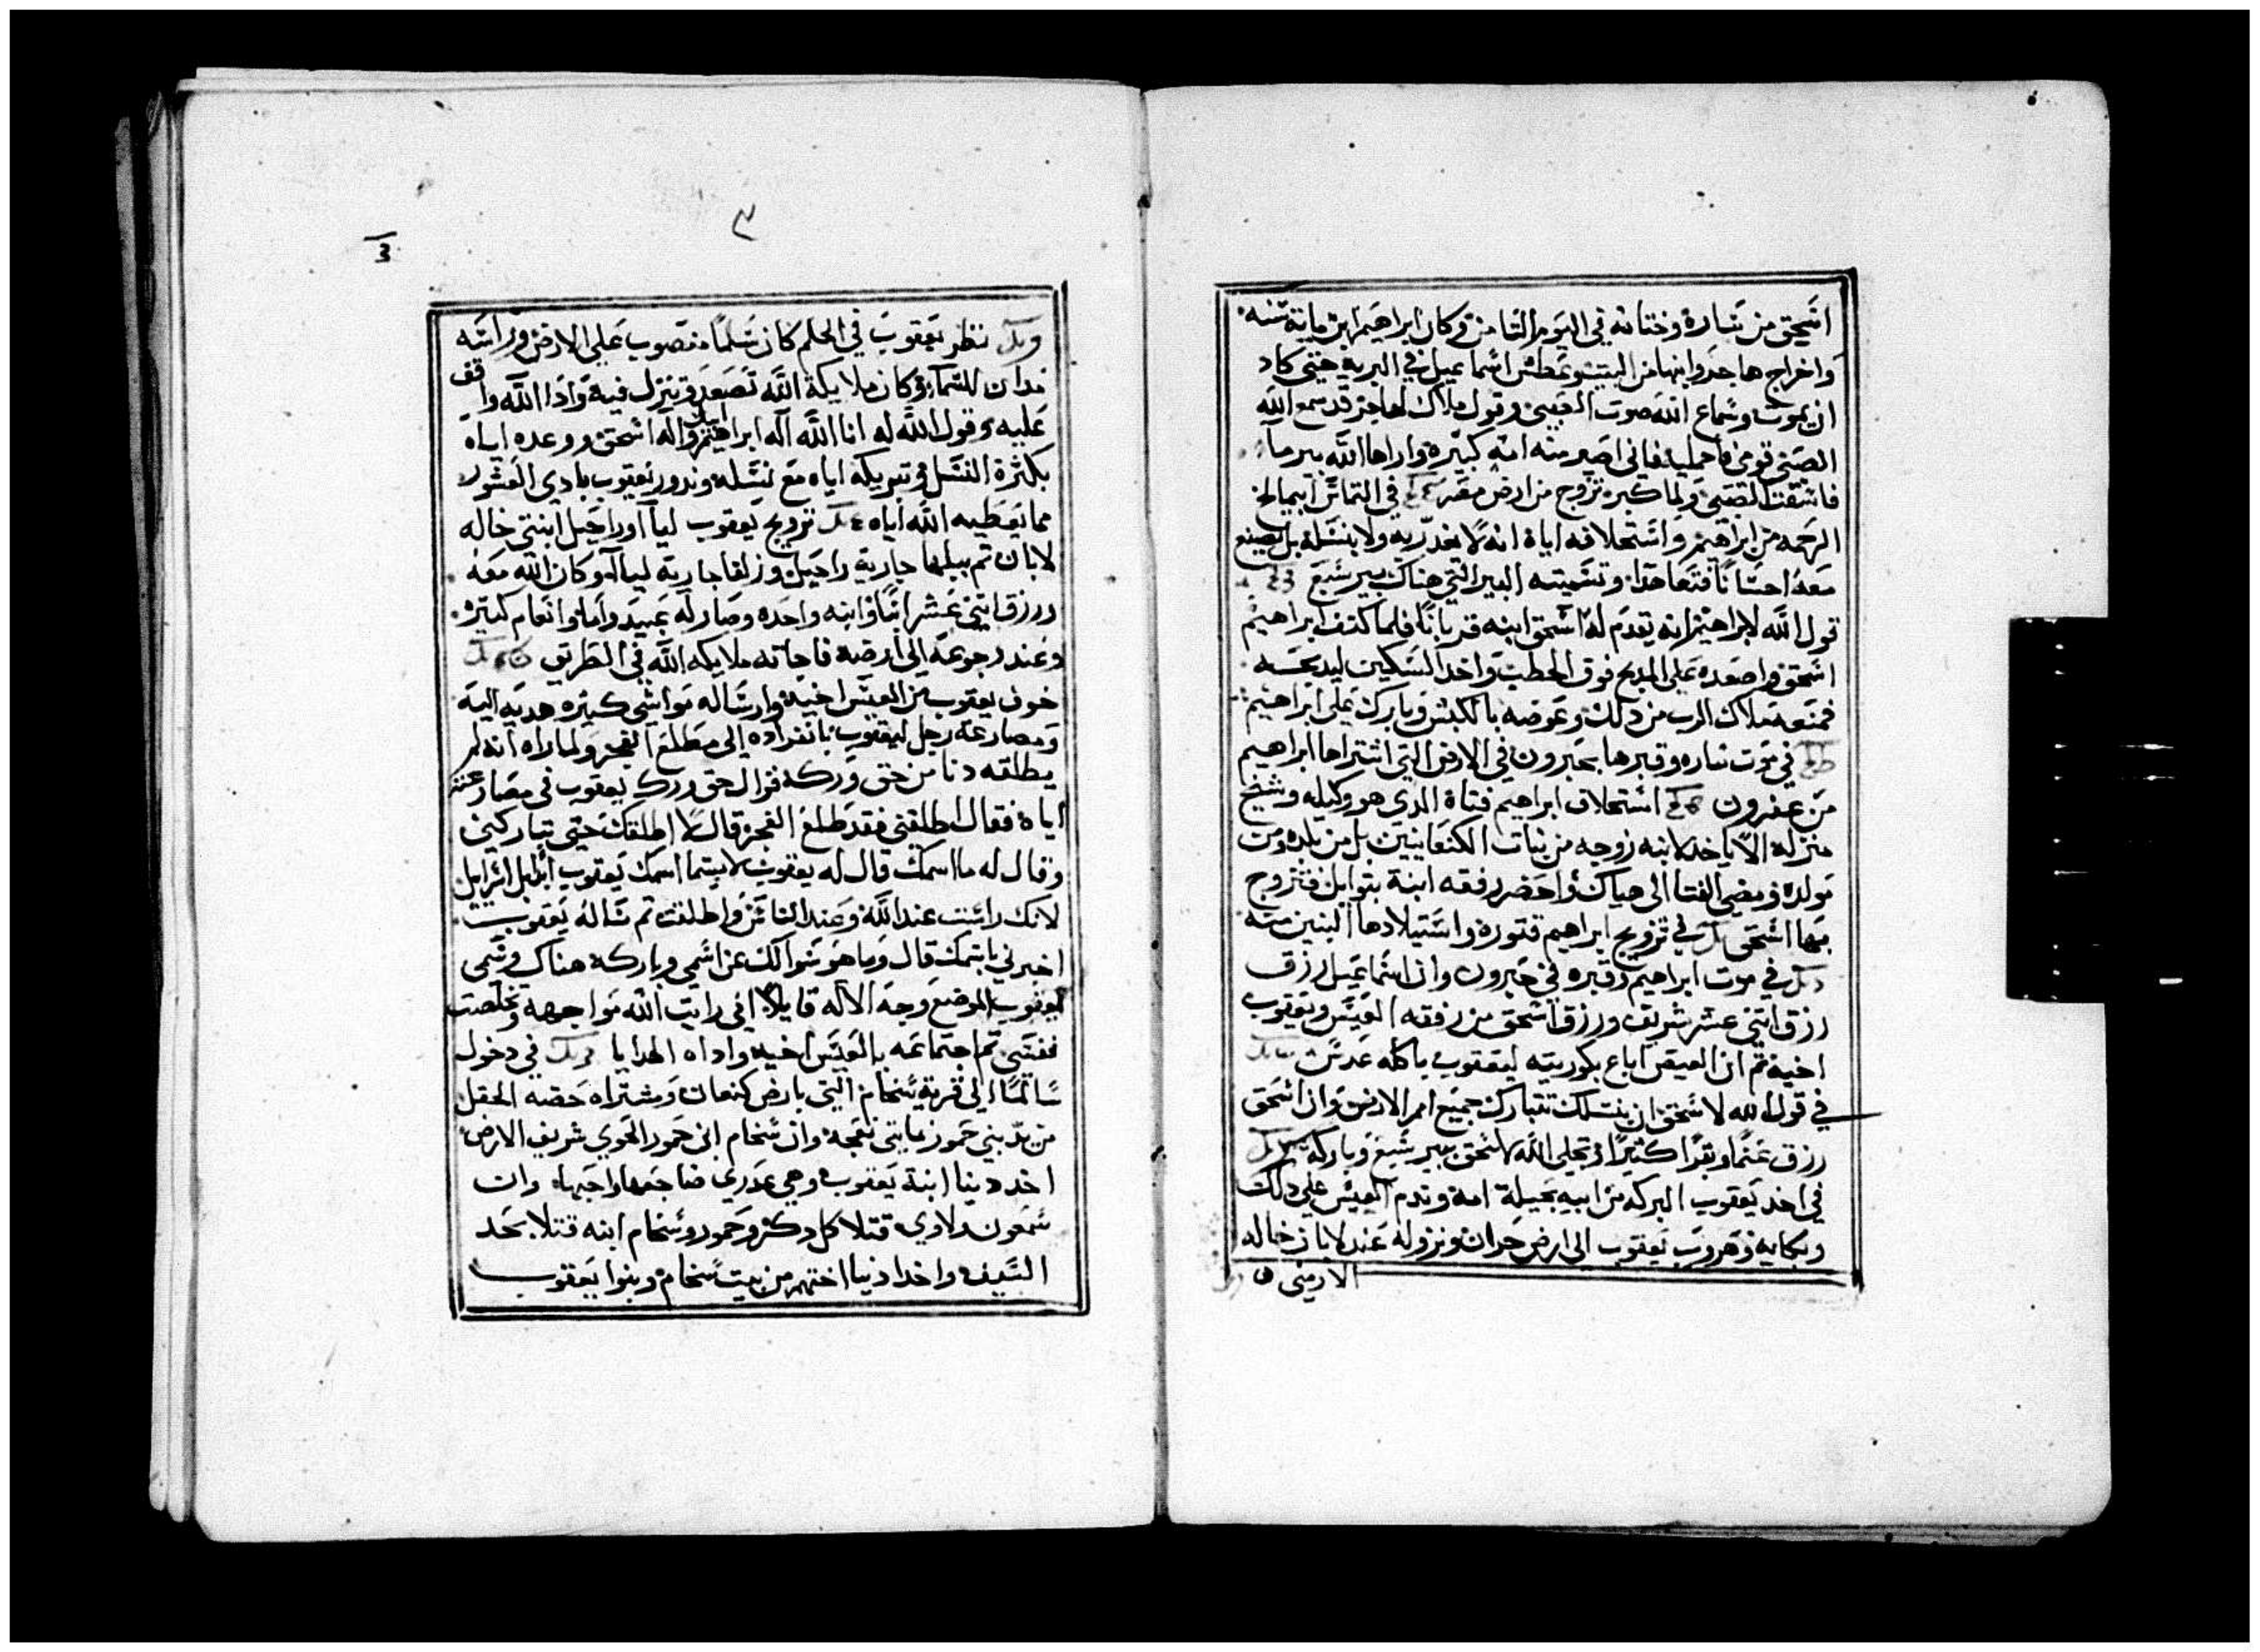 اسحق من ساره وختانه في اليوم الثامن وكان ابراهيم ابن ماية سنه
واخراج هاجر وابنها من البيت وعطش اسماعيل في البريه حتى كاد
ان يموت وسماع الله صوت الصبي وقول ملاك لهاجر قد سمع الله
الصبي قومي فاحمليه فاني اصير منه امه كبيره واراها الله بير ماء
فاسقت الصبي ولما كبر تزوج من ارض مصر في التماس ابيمالخ
الرحمه من ابراهيم واستحلافه اياه انه لا يغدر به ولا بنسله بل يصنع
معه احسانا فتعاهدا وتسميته البير التي هناك بير سبع
قول الله لابراهيم انه يقدم له اسحق ابنه قربانا فلما كتف ابراهيم
اسحق واصعده على المدبح فوق الحطب واخد السكين ليدبحه
فمنعه ملاك الرب من دلك وعوضه بالكبش وبارك على ابراهيم
في موت ساره وقبرها بحبرون في الارض التي اشتراها ابراهيم
من عفرون استحلاف ابراهيم فتاه الدي هو وكيله وشيخ
منزله الا ياخد لابنه زوجه من بنات الكنعانيين بل من بلده ومن
مولده ومضى الفتا الى هناك واحضر رفقه ابنة بتوايل فتزوج
بها اسحق في تزويج ابراهيم قتوره واستيلادها البنين منه
في موت ابراهيم وقبره في حبرون وان اسماعيل رزق
رزق اثني عشر شريف ورزق اسحق من رفقه العيس ويعقوب
اخيه ثم ان العيس اباع بكوريته ليعقوب باكله عدس
في قول الله لاسحق ان بنسلك تتبارك جميع امم الارض وان اسحق
رزق غنما وبقرا كثيرا وتجلى الله لاسحق ببير سبع وباركه
في اخد يعقوب البركه من ابيه بحيلة امه وندم العيس على دلك
وبكايه وهروب يعقوب الى ارض حران ونزوله عند لابان خاله
الارمني
٣
3
نظر يعقوب في الحلم كان سلما منصوب على الارض وراسه
للسماء وكان ملايكة الله تصعد وتنزل فيه وادا الله واقف
عليه وقول الله له انا الله اله ابراهيم ابيك واله اسحق ووعده اياه
بكثرة النسل وتبريكه اياه مع نسله وندور يعقوب يادي العشور
مما يعطيه الله اياه تزويج يعقوب ليا وراحيل ابنتي خاله
لابان ثم ببلها جارية راحيل وزلفا جارية ليا وكان الله معه
ورزق اثني عشر ابنا وابنه واحده وصار له عبيد واما وانعام كثيره
وعند رجوعه الى ارضه فاجاته ملايكه الله في الطريق
خوف يعقوب من العيس اخيه وارساله مواشي كثيره هديه اليه
ومصارعة رجل ليعقوب بانفراده الى مطلع الفجر ولما راه انه لم
يطلقه دنا من حق وركه فزال حق ورك يعقوب في مصارعته
اياه فقال اطلقني فقد طلع الفجر قال لا اطلقك حتى تباركني
وقال له ما اسمك قال له يعقوب لا يسما اسمك يعقوب بل اسرايل
لانك راست عند الله وعند الناس واطلقت ثم ساله يعقوب
اخبرني باسمك قال وما هو سوالك عن اسمي وباركه هناك وسمى
يعقوب الموضع وجه الاله قايلا اني رايت الله مواجهه وتخلصت
نفسي ثم اجتماعه بالعيس اخيه واداه الهدايا في دخول
سالما الى قرية سخام التي بارض كنعان ومشتراه حصة الحقل
من يد بني حمور بمايتي نعجه وان سخام ابن حمور الحوي شريف الارض
اخد دينا ابنة يعقوب وهي عدري ضاجعها واحبها وان
شمعون ولاوي قتلا كل دكر وحمور وسخام ابنه قتلا بحد
السيف واخدا دينا اختهم من بيت سخام وبنوا يعقوب